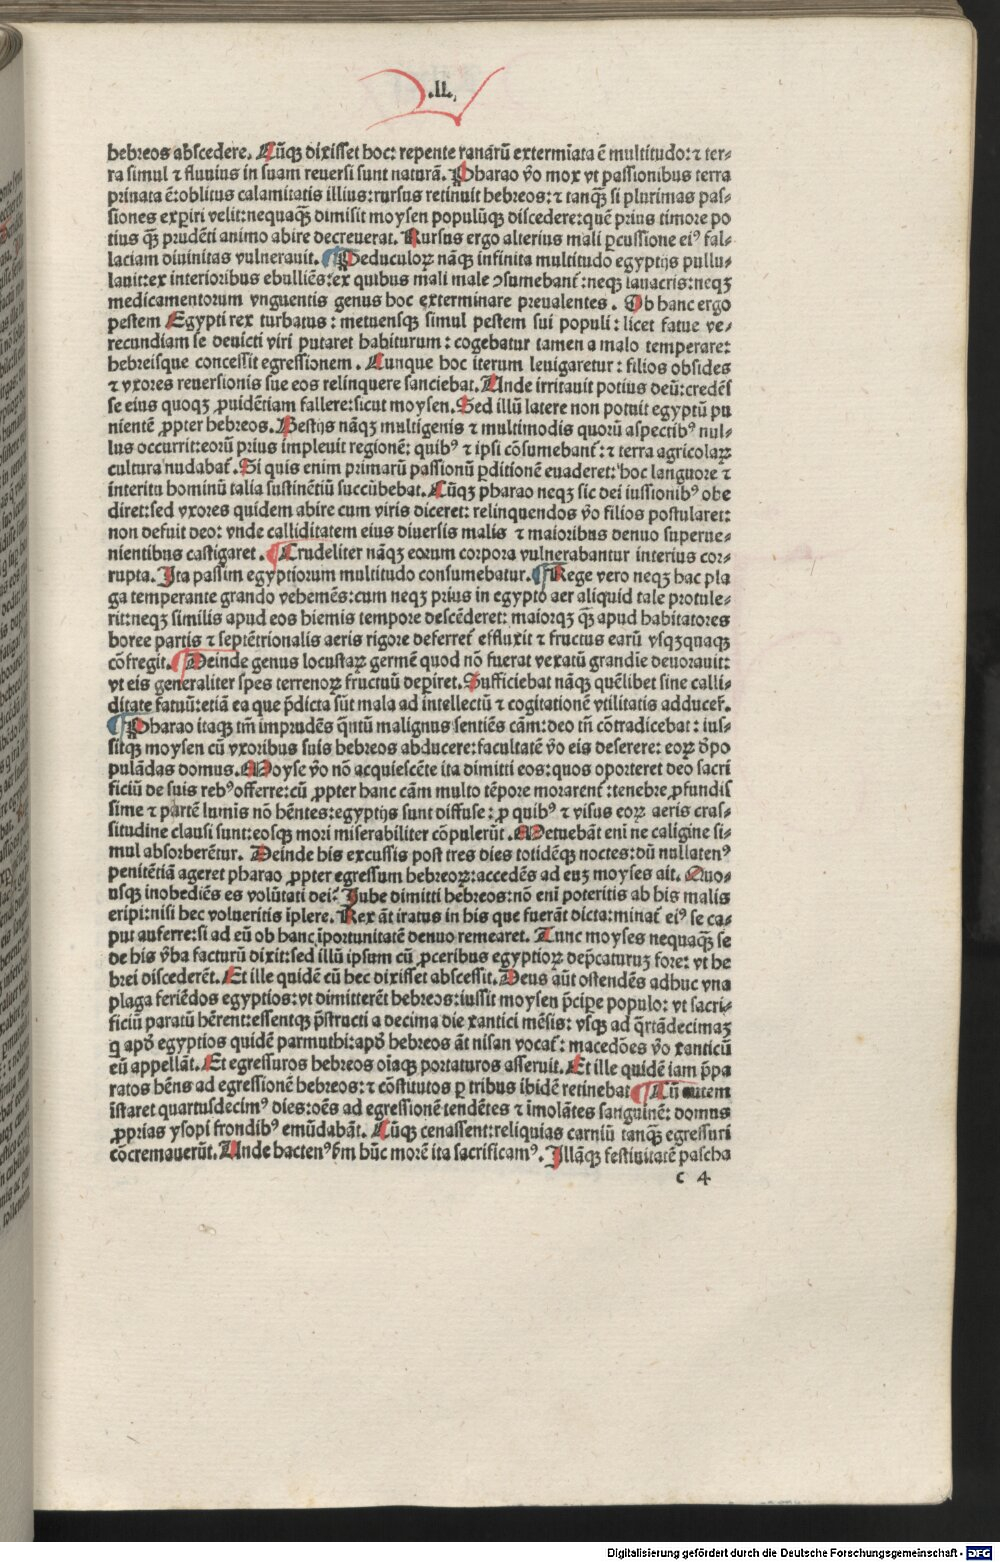 .II.
hebreos abscedere. Cūq; dixisset hoc: repente ranarū extermīata ē multitudo: ⁊ ter-
ra simul ⁊ fluuius in suam reuersi sunt naturā. Pharao v̄o mox vt passionibus terra
priuata ē: oblitus calamitatis illius: rursus retinuit hebreos: ⁊ tanq̄ȝ si plurimas pas-
siones experiri velit: nequaq̄ȝ dimisit moysen populūq; discedere: quē prius timore po
tius q̄ȝ prudēti animo abire decreuerat. Rursus ergo alterius mali ꝑcussione eiꝰ fal-
laciam diuinitas vulnerauit. ¶ Peduculoꝝ nāq; infinita multitudo egyptijs pullu-
lauit: ex interioribus ebulliēs: ex quibus mali male ↄsumebant̄: neq; lauacris: neqȝ
medicamentorum vnguentis genus hoc exterminare preualentes. Ob hanc ergo
pestem Egypti rex turbatus: metuensq; simul pestem sui populi: licet fatue ve-
recundiam se deuicti viri putaret habiturum: cogebatur tamen a malo temperare:
hebreisque concessit egressionem. Cunque hoc iterum leuigaretur: filios obsides
⁊ vxores reuersionis sue eos relinquere sanciebat. Unde irritauit potius deū: credēs
se eius quoqȝ ꝓuidētiam fallere: sicut moysen. Sed illū latere non potuit egyptū pu
nientē ꝓpter hebreos. Bestijs nāqȝ multigenis ⁊ multimodis quorū aspectibꝰ nul-
lus occurrit: eorū prius impleuit regionē: quibꝰ ⁊ ipsi cōsumebant̄: ⁊ terra agricolaꝝ
cultura nudabat̄. Si quis enim primarū passionū ꝑditionē euaderet: hoc languore ⁊
interitu hominū talia sustinētiū succūbebat. Cūqȝ pharao neqȝ sic dei iussionibꝰ obe
diret: sed vxores quidem abire cum viris diceret: relinquendos v̄o filios postularet:
non defuit deo: vnde calliditatem eius diuersis malis ⁊ maioribus denuo superue-
nientibus castigaret. ¶ Crudeliter nāqȝ eorum corpora vulnerabantur interius cor-
rupta. Ita passim egyptiorum multitudo consumebatur. ¶ Rege vero neqȝ hac pla
ga temperante grando vehemēs: cum neqȝ prius in egypto aer aliquid tale protule-
rit: neqȝ similis apud eos hiemis tempore descēderet: maiorqȝ q̄ȝ apud habitatores
boree partis ⁊ septētrionalis aeris rigore deferret̄ effluxit ⁊ fructus earū vsqȝquaqȝ
cōfregit. ¶ Deinde genus locustaꝝ germē quod nō fuerat vexatū grandie deuorauit:
vt eis generaliter spes terrenoꝝ fructuū deꝑiret. Sufficiebat nāqȝ quēlibet sine calli-
ditate fatuū: etiā ea que p̄dicta sūt mala ad intellectū ⁊ cogitationē vtilitatis adducer̄.
¶ Pharao itaqȝ tm̄ imprudēs q̄ntū malignus sentiēs cām: deo tn̄ cōtradicebat: ius-
sitqȝ moysen cū vxoribus suis hebreos abducere: facultatē v̄o eis deserere: eoꝝ d̄po
pulādas domus. Moyse v̄o nō acquiescēte ita dimitti eos: quos oporteret deo sacri
ficiū de suis rebꝰ offerre: cū ꝓpter hanc cām multo tēpore morarent̄: tenebre ꝓfundis
sime ⁊ partē lumis nō hēntes: egyptijs sunt diffuse: ꝑ quibꝰ ⁊ visus eoꝝ aeris cras-
situdine clausi sunt: eosqȝ mori miserabiliter cōpulerūt. Metuebāt eni ne caligine si-
mul absorberētur. Deinde his excussis post tres dies totidēqȝ noctes: dū nullatenꝰ
penitētiā ageret pharao ꝓpter egressum hebreoꝝ: accedēs ad euȝ moyses ait. Quo-
usqȝ inobediēs es volūtati dei? Jube dimitti hebreos: nō enī poteritis ab his malis
eripi: nisi hec volueritis īplere. Rex āt iratus in his que fuerāt dicta: minat̄ eiꝰ se ca-
put auferre: si ad eū ob hanc īportunitatē denuo remearet. Tunc moyses nequaq̄ȝ se
de his v̄ba facturū dixit: sed illū ipsum cū ꝓceribus egyptioꝝ dep̄caturuȝ fore: vt he
brei discederēt. Et ille quidē cū hec dixisset abscessit. Deus aūt ostendēs adhuc vna
plaga feriēdos egyptios: vt dimitterēt hebreos: iussit moysen p̄cipe populo: vt sacri-
ficiū paratū hērent: essentqȝ p̄structi a decima die xantici mēsis: vsqȝ ad q̄rtādecimaȝ
q apd̄ egyptios quidē parmuthi: apd̄ hebreos āt nisan vocat̄: macedōes v̄o xanticū
eū appellāt. Et egressuros hebreos oīaqȝ portaturos asseruit. Et ille quidē iam p̄pa
ratos hēns ad egressionē hebreos: ⁊ cōstitutos ꝑ tribus ibidē retinebat ¶ Cū autem
īstaret quartusdecimꝰ dies: oēs ad egressionē tendētes ⁊ īmolātes sanguinē: domus
ꝓprias ysopi frondibꝰ emūdabāt. Cūqȝ cenassent: reliquias carniū tanq̄ȝ egressuri
cōcremauerūt. Unde hactenꝰ ẜm hūc morē ita sacrificamꝰ. Illāqȝ festiuitatē pascha
c 4
Digitalisierung gefördert durch die Deutsche Forschungsgemeinschaft - DFG